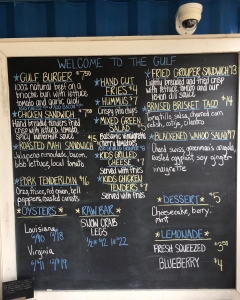 WELCOME TO THE GULF
GULF BURGER $7.50
100% natural beef on a
brioche bun with lettuce
tomato and garlic aioli
CHICKEN SANDWICH
Hand breaded tenders fried
crisp with lettuce, tomato,
spicy
ROASTED MAHI SANDWICH
Jalapeno remoulade, bacon,
lettuce, tomato
PORK TENDERLOIN $16
peppers, roasted carrots
OYSTERS
Louisiana
Virginia
HAND CUT
FRIES $4
HUMMUS $7
Crispy pita chips
MIXED GREEN
SALAD
Balsamic vinaigrette
cherry tomatoes
KIDS GRILLED
CHEESE
Served with fries
KIDS CHICKEN
TENDERS $7
Served with fries
RAW BAR
SNOW CRAB
LEGS
FRIED GROUPER SANDWICH $13
Lightly breaded and fried crisp
with lettuce, tomato and our
lemon dill sauce
BRAISED BRISKET TACO $14
Tomatillo salsa, charred corn
salsa, cotija, cilantro
BLACKENED WAHOO SALAD
Chard, swiss, asparagus, arugula,
roasted eggplant, soy ginger
vinaigrette
DESSERT $5
Cheesecake, berry
mint
LEMONADE
FRESH SQUEEZED
BLUEBERRY $4